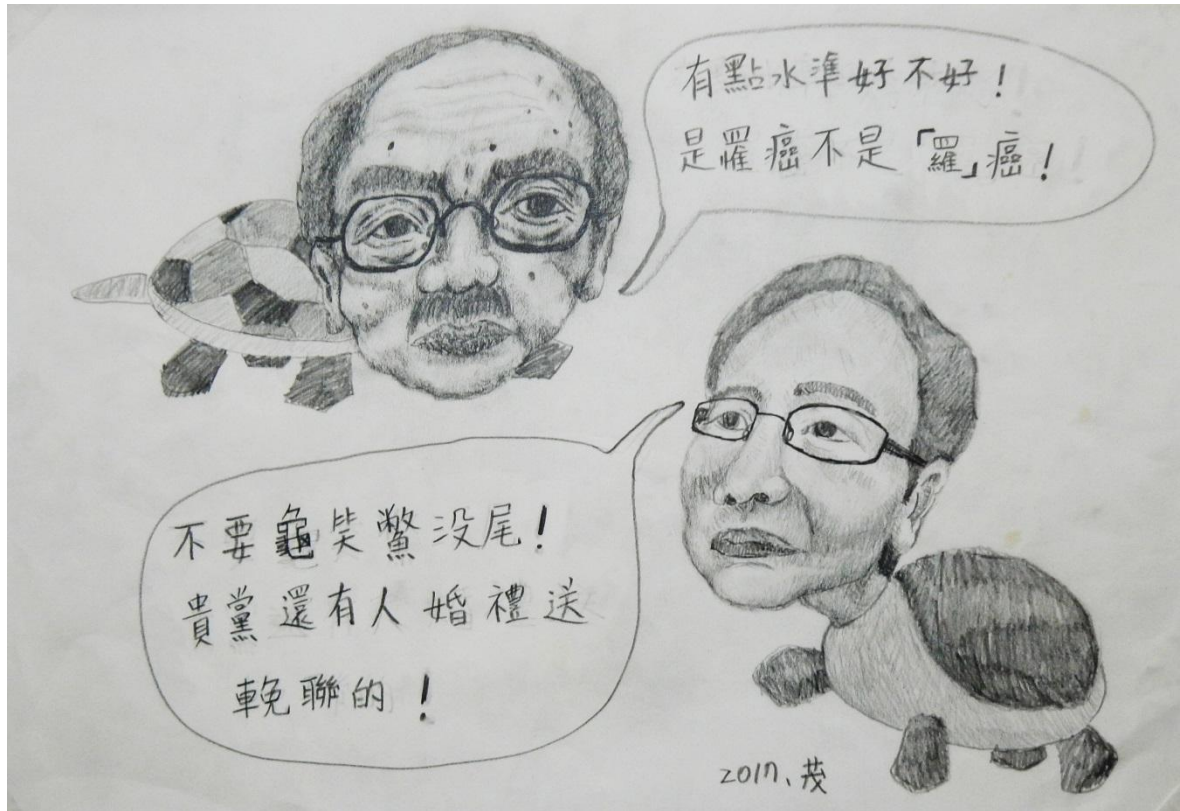 有點水準好不好！
是罹癌不是「羅」癌！
不要龜笑鱉没尾！
貴黨還有人婚禮送
輓聯的！
2017、茂